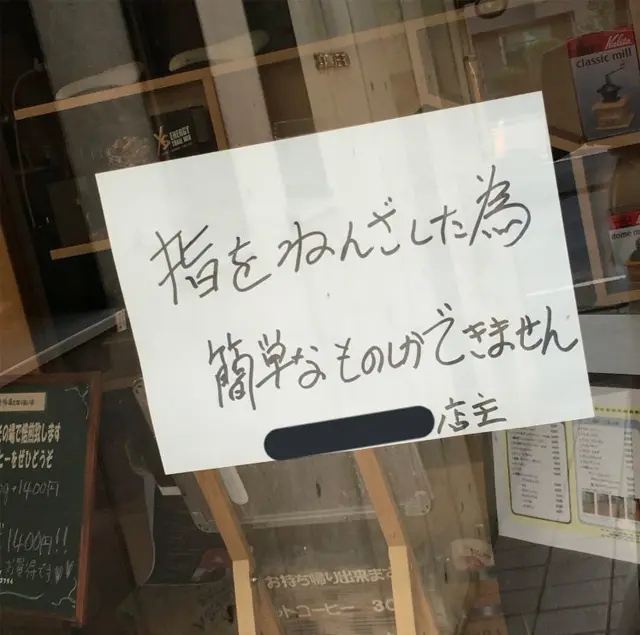 指をねんざした為
簡単なものしかできません
店主
Kalita
classic mill
ENERGY
の場で焙煎致します
ヒーをぜひどうぞ
1400円
1400円!!
お買得です
お持ち帰り出来ます
ットコーヒー 30
dome m